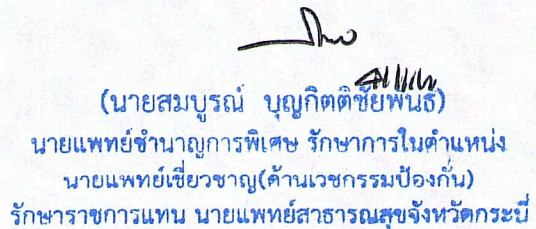 (นายสมบูรณ์ บุญกิตติชัยพันธ์)
นายแพทย์ชำนาญการพิเศษ รักษาการในตำแหน่ง
นายแพทย์เชี่ยวชาญ(ด้านเวชกรรมป้องกัน)
รักษาราชการแทน นายแพทย์สาธารณสุขจังหวัดกระบี่